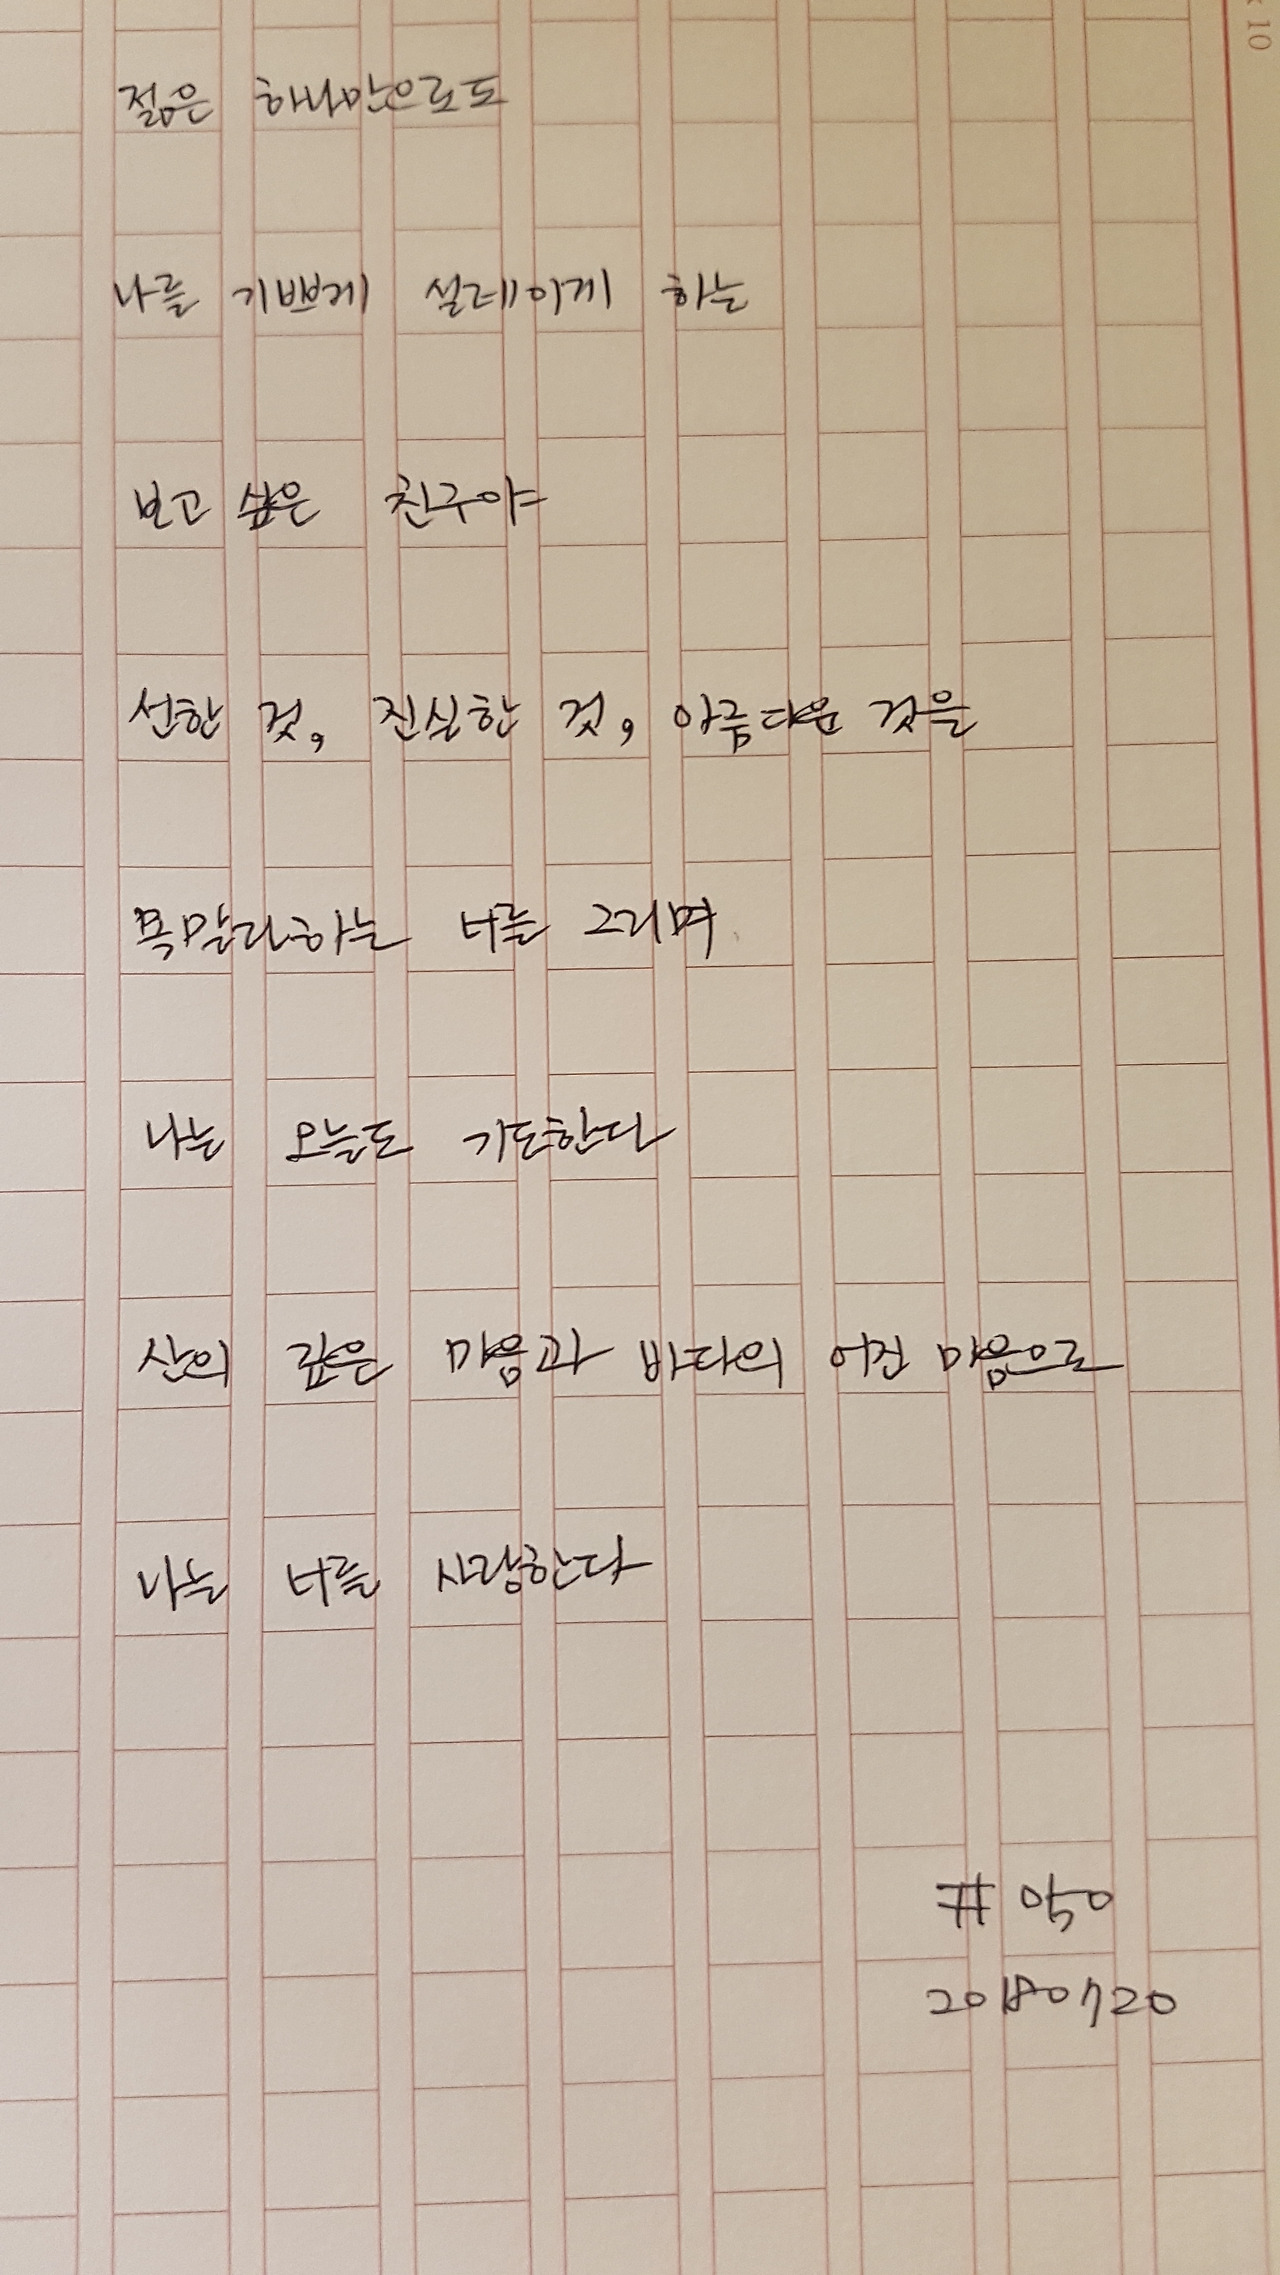 젊은 하나만으로도
나를 기쁘게 설레이게 하는
보고 싶은 친구야
선한 것, 진실한 것, 아름다운 것을
목말라하는 너를 그리며
나는 오늘도 기도한다
산의 깊은 마음과 바다의 어진 마음으로
나는 너를 사랑한다
20180720
10